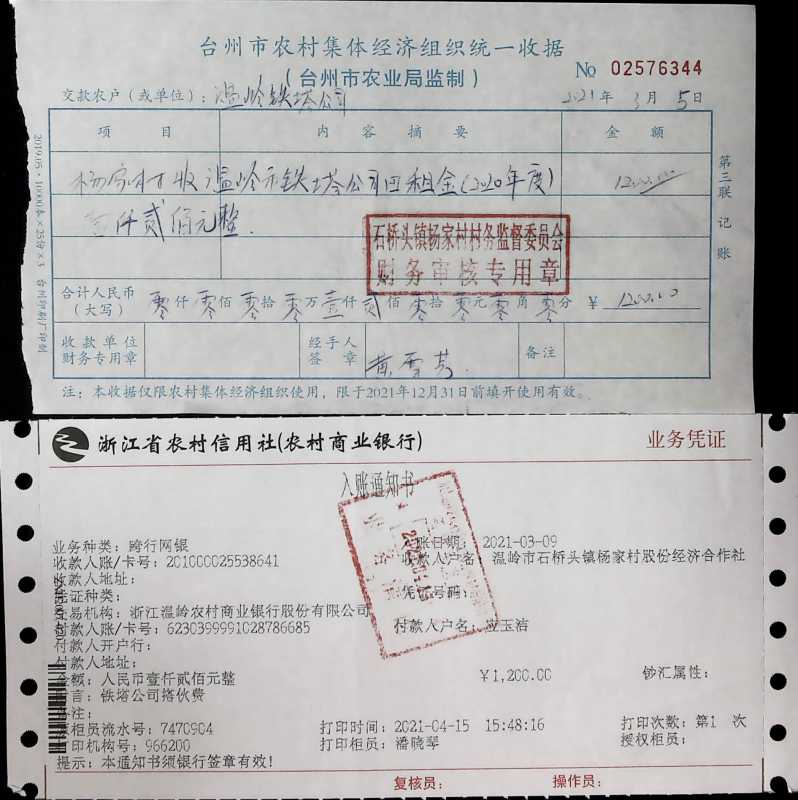 台州市农村集体经济组织统一收据
(台州市农业局监制)
№ 02576344
交款农户（或单位）：温岭铁塔公司
2021年 3月 5日
项 目 内 容 摘 要 金 额
杨家村收温岭市铁塔公司田租金(2020年度) 1200.00
壹仟贰佰元整.
石桥头镇杨家村村务监督委员会
财务审核专用章
合计人民币（大写） 零仟零佰零拾零万壹仟贰佰零拾零元零角零分 ¥ 1200.00
收款单位财务专用章
经手人签章
备注
注：本收据仅限农村集体经济组织使用，限于2021年12月31日前填开使用有效。
第三联 记账
2019.05·10000本×25份×3 台州印刷厂印制
浙江省农村信用社(农村商业银行)
业务凭证
入账通知书
业务种类：跨行网银
账日期： 2021-03-09
收款人账/卡号：201000025538641
收款人户名：温岭市石桥头镇杨家村股份经济合作社
收款人地址：
凭证种类：
凭证号码：
交易机构：浙江温岭农村商业银行股份有限公司
付款人账/卡号：6230399991028786685
付款人户名：应玉洁
付款人开户行：
付款人地址：
金额：人民币壹仟贰佰元整
¥1,200.00
钞汇属性：
言：铁塔公司搭伙费
备注：
柜员流水号：7470904
打印时间：2021-04-15 15:48:16
打印次数：第1 次
打印机构号：966200
打印柜员：潘晓翠
授权柜员：
提示：本通知书须银行签章有效!
复核员：
操作员：